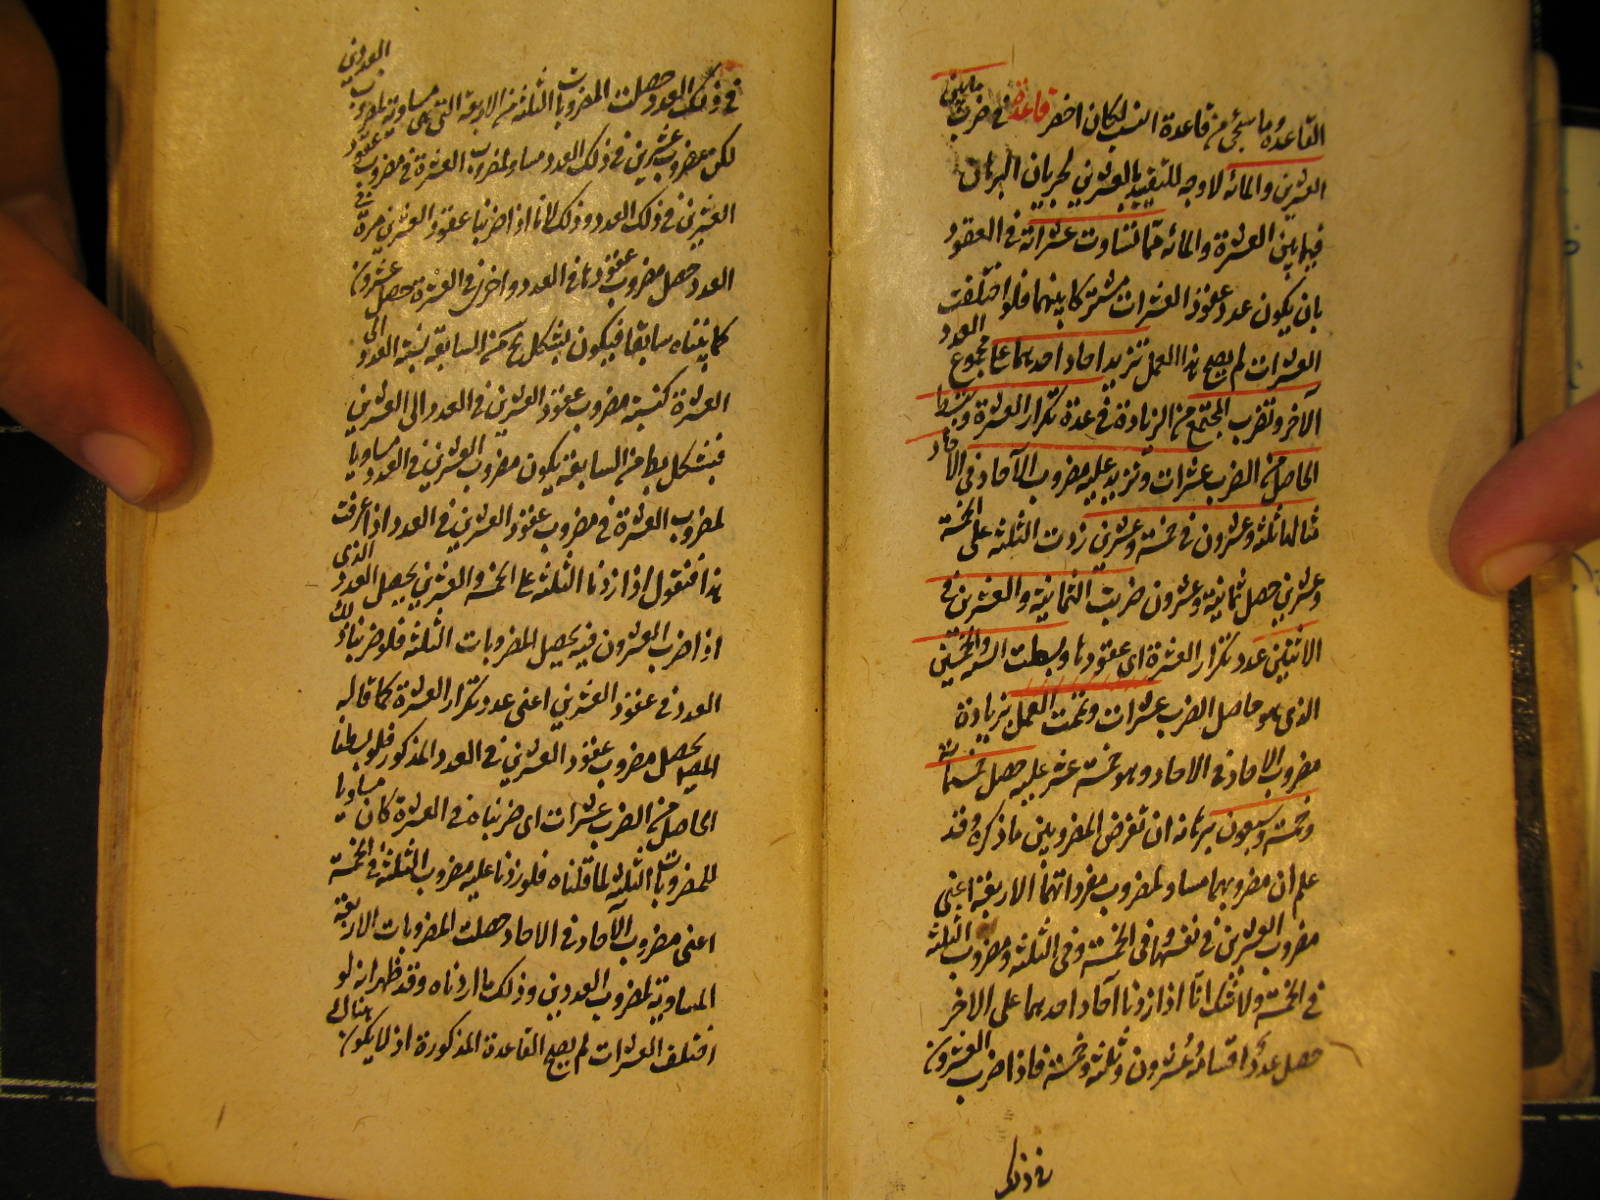 القاعدة وما سيجئ من قاعدة النسب لكان اخصر قاعدة في ضرب ما بين
العشرين والمائه لا وجه للتقييد بالعشرين لجريان البرهان
فيما بين العشرة والمائه مما تساوت عشراته في العقود
بان يكون عدد عقود العشرات مشتركا بينهما فلو اختلفت
العشرات لم يصح هذا العمل تزيد احاد احدهما على مجموع العدد
الآخر وتضرب المجتمع من الزيادة في عدة تكرار العشرة وتبسط
الحاصل من الضرب عشرات وتزيد عليه مضروب الآحاد في الاحاد
مثالها ثلثة وعشرون في خمسة وعشرين زدت الثلثة على الخمسة
وعشرين حصل ثمانية وعشرون ضربت الثمانية والعشرين في
الاثنين عدد تكرار العشرة اى عقودها وبسطت الستة والخمسين
الذى هو حاصل الضرب عشرات وتممت العمل بزيادة
مضروب الاحاد في الاحاد وهو خمسة عشر عليه حصل خمسمائة
وخمسة وسبعون برهانه ان تفرض المضروبين ما ذكره وقد
علم ان مضروبهما مساو لمضروب مفرداتهما الاربعة اعنى
مضروب العشرين في نفسها وفي الخمسة وفي الثلثة ومضروب الثلثة
في الخمسة ولا شك انا اذا زدنا آحاد احدهما على الاخر
حصل عدد اقسامه عشرون وثلثة وخمسة فاذا ضرب العشرون
في ذلك
في ذلك العدد حصلت المضروبات الثلثة من الاربعة التى هى مساوية لمضروب العددين
لكن مضروب عشرين في ذلك العدد مساو لمضروب العشرة في مضروب عقود
العشرين في ذلك العدد وذلك لانا اذا ضربنا عقود العشرين مرة في
العدد حصل مضروب عقودها في العدد واخرى في العشرة حصل عشرون
كما بيناه سابقا فيكون بشكل من السابعة نسبة العدد الى
العشرة كنسبة مضروب عقود العشرين في العدد الى العشرين
فبشكل من السابعة يكون مضروب العشرين في العدد مساويا
لمضروب العشرة في مضروب عقود العشرين في العدد اذا عرفت
هذا فنقول اذا زدنا الثلثة على الخمسة والعشرين يحصل العدد الذى
اذا ضرب العشرون فيه يحصل المضروبات الثلثة فلو ضربنا ذلك
العدد في عقود العشرين اعنى عدد تكرار العشرة كما قاله
المص يحصل مضروب عقود العشرين في العدد المذكور فلو بسطنا
الحاصل من الضرب عشرات اى ضربناه في العشرة كان مساويا
للمضروبات الثلثة لما قلناه فلو زدنا عليه مضروب الثلثة في الخمسة
اعنى مضروب الآحاد في الاحاد حصلت المضروبات الاربعة
المساوية لمضروب العددين وذلك ما اردناه وقد ظهر انه لو
اختلف العشرات لم يصح القاعدة المذكورة اذ لا يكون هناك